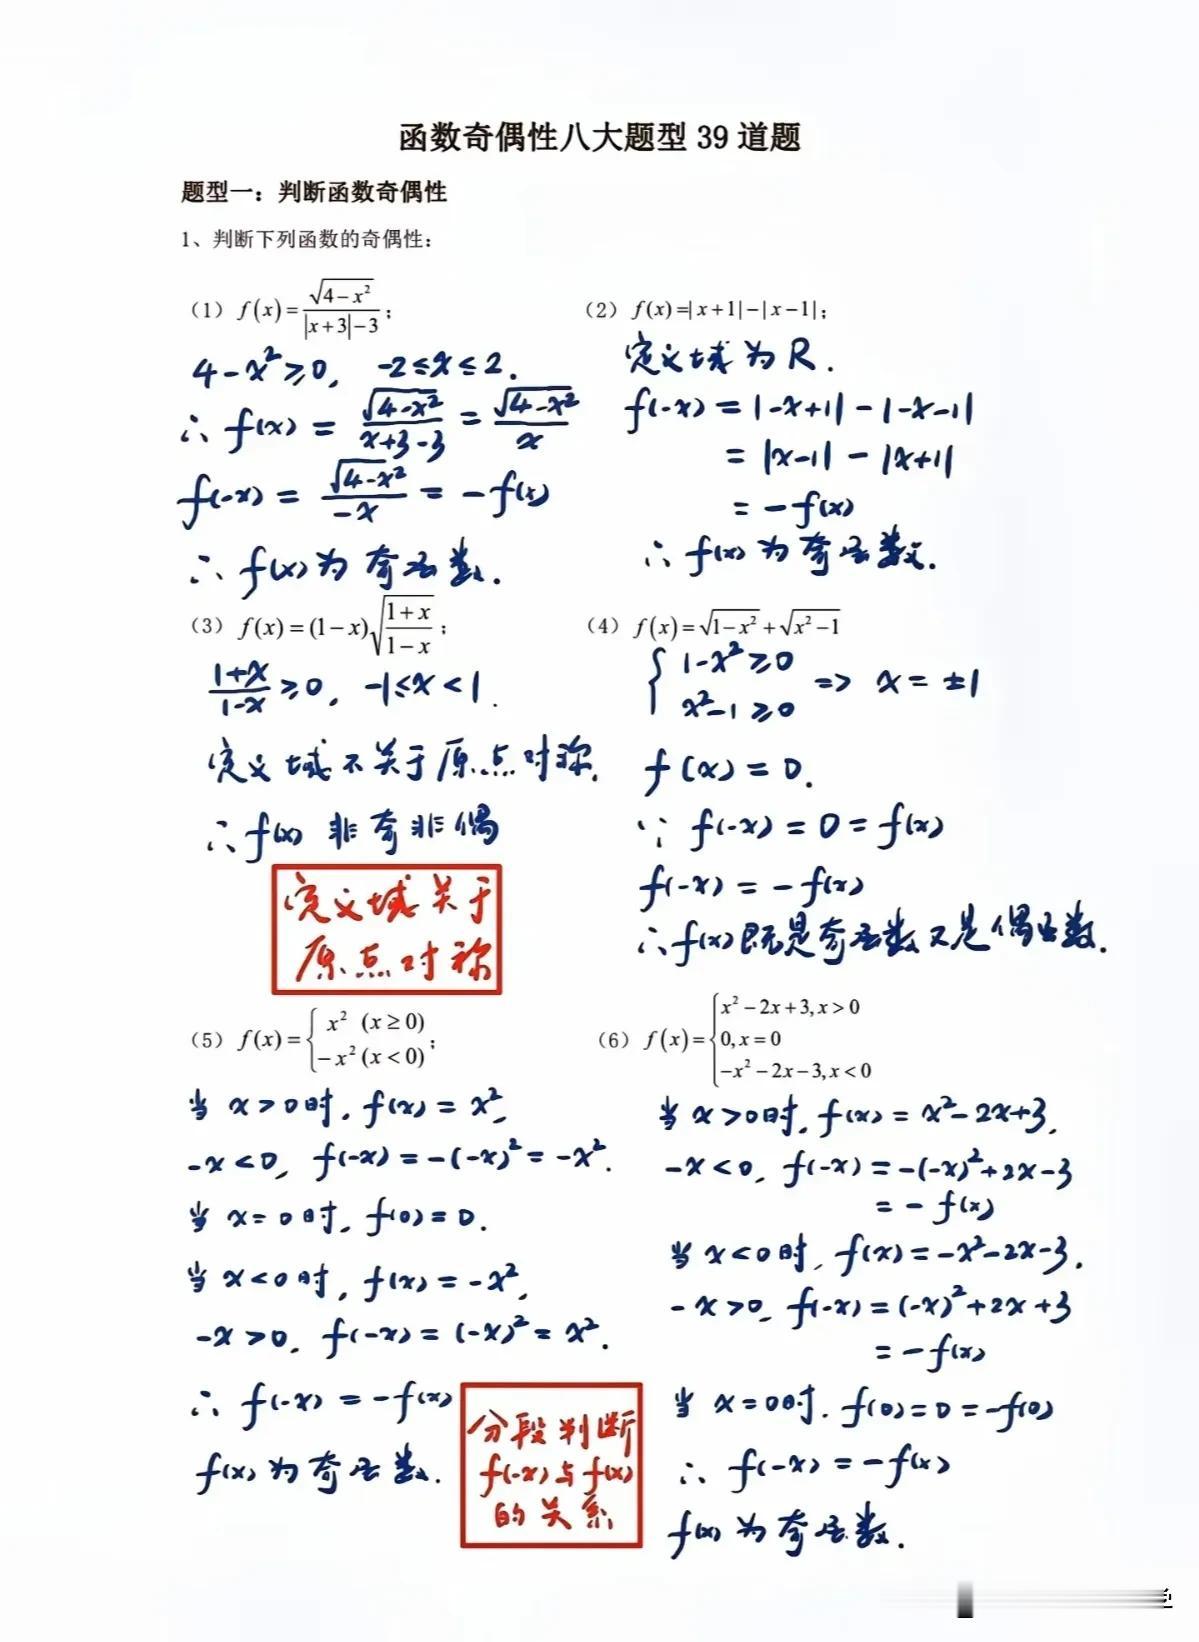 函数奇偶性八大题型 39 道题
题型一：判断函数奇偶性
1、判断下列函数的奇偶性：
（1）f(x)=√(4-x²)/(|x+3|-3)；
4-x²≥0, -2≤x≤2.
∴ f(x) = √(4-x²)/(x+3-3) = √(4-x²)/x
f(-x) = √(4-x²)/(-x) = -f(x)
∴ f(x)为奇函数.
（2）f(x)=|x+1|-|x-1|；
定义域为R.
f(-x) = |-x+1| - |-x-1|
= |x-1| - |x+1|
= -f(x)
∴ f(x)为奇函数.
（3）f(x)=(1-x)√((1+x)/(1-x))；
(1+x)/(1-x) ≥0, -1≤x<1.
定义域不关于原点对称.
∴ f(x) 非奇非偶
定义域关于
原点对称
（4）f(x)=√(1-x²)+√(x²-1)
{ 1-x²≥0
x²-1≥0 => x=±1
f(x)=0.
∵ f(-x)=0=f(x)
f(-x)=-f(x)
∴f(x)既是奇函数又是偶函数.
（5）f(x)={ x² (x≥0)
-x² (x<0)；
当 x>0时, f(x)=x²,
-x<0, f(-x)=-(-x)²=-x².
当 x=0时, f(0)=0.
当 x<0时, f(x)=-x²,
-x>0, f(-x)=(-x)²=x².
∴ f(-x)=-f(x)
f(x)为奇函数.
分段判断
f(-x)与f(x)
的关系
（6）f(x)={ x²-2x+3, x>0
0, x=0
-x²-2x-3, x<0
当 x>0时, f(x)=x²-2x+3,
-x<0, f(-x)=-(-x)²+2x-3
=-f(x)
当 x<0时, f(x)=-x²-2x-3.
-x>0, f(-x)=(-x)²+2x+3
=-f(x)
当 x=0时. f(0)=0=-f(0)
∴ f(-x)=-f(x)
f(x)为奇函数.